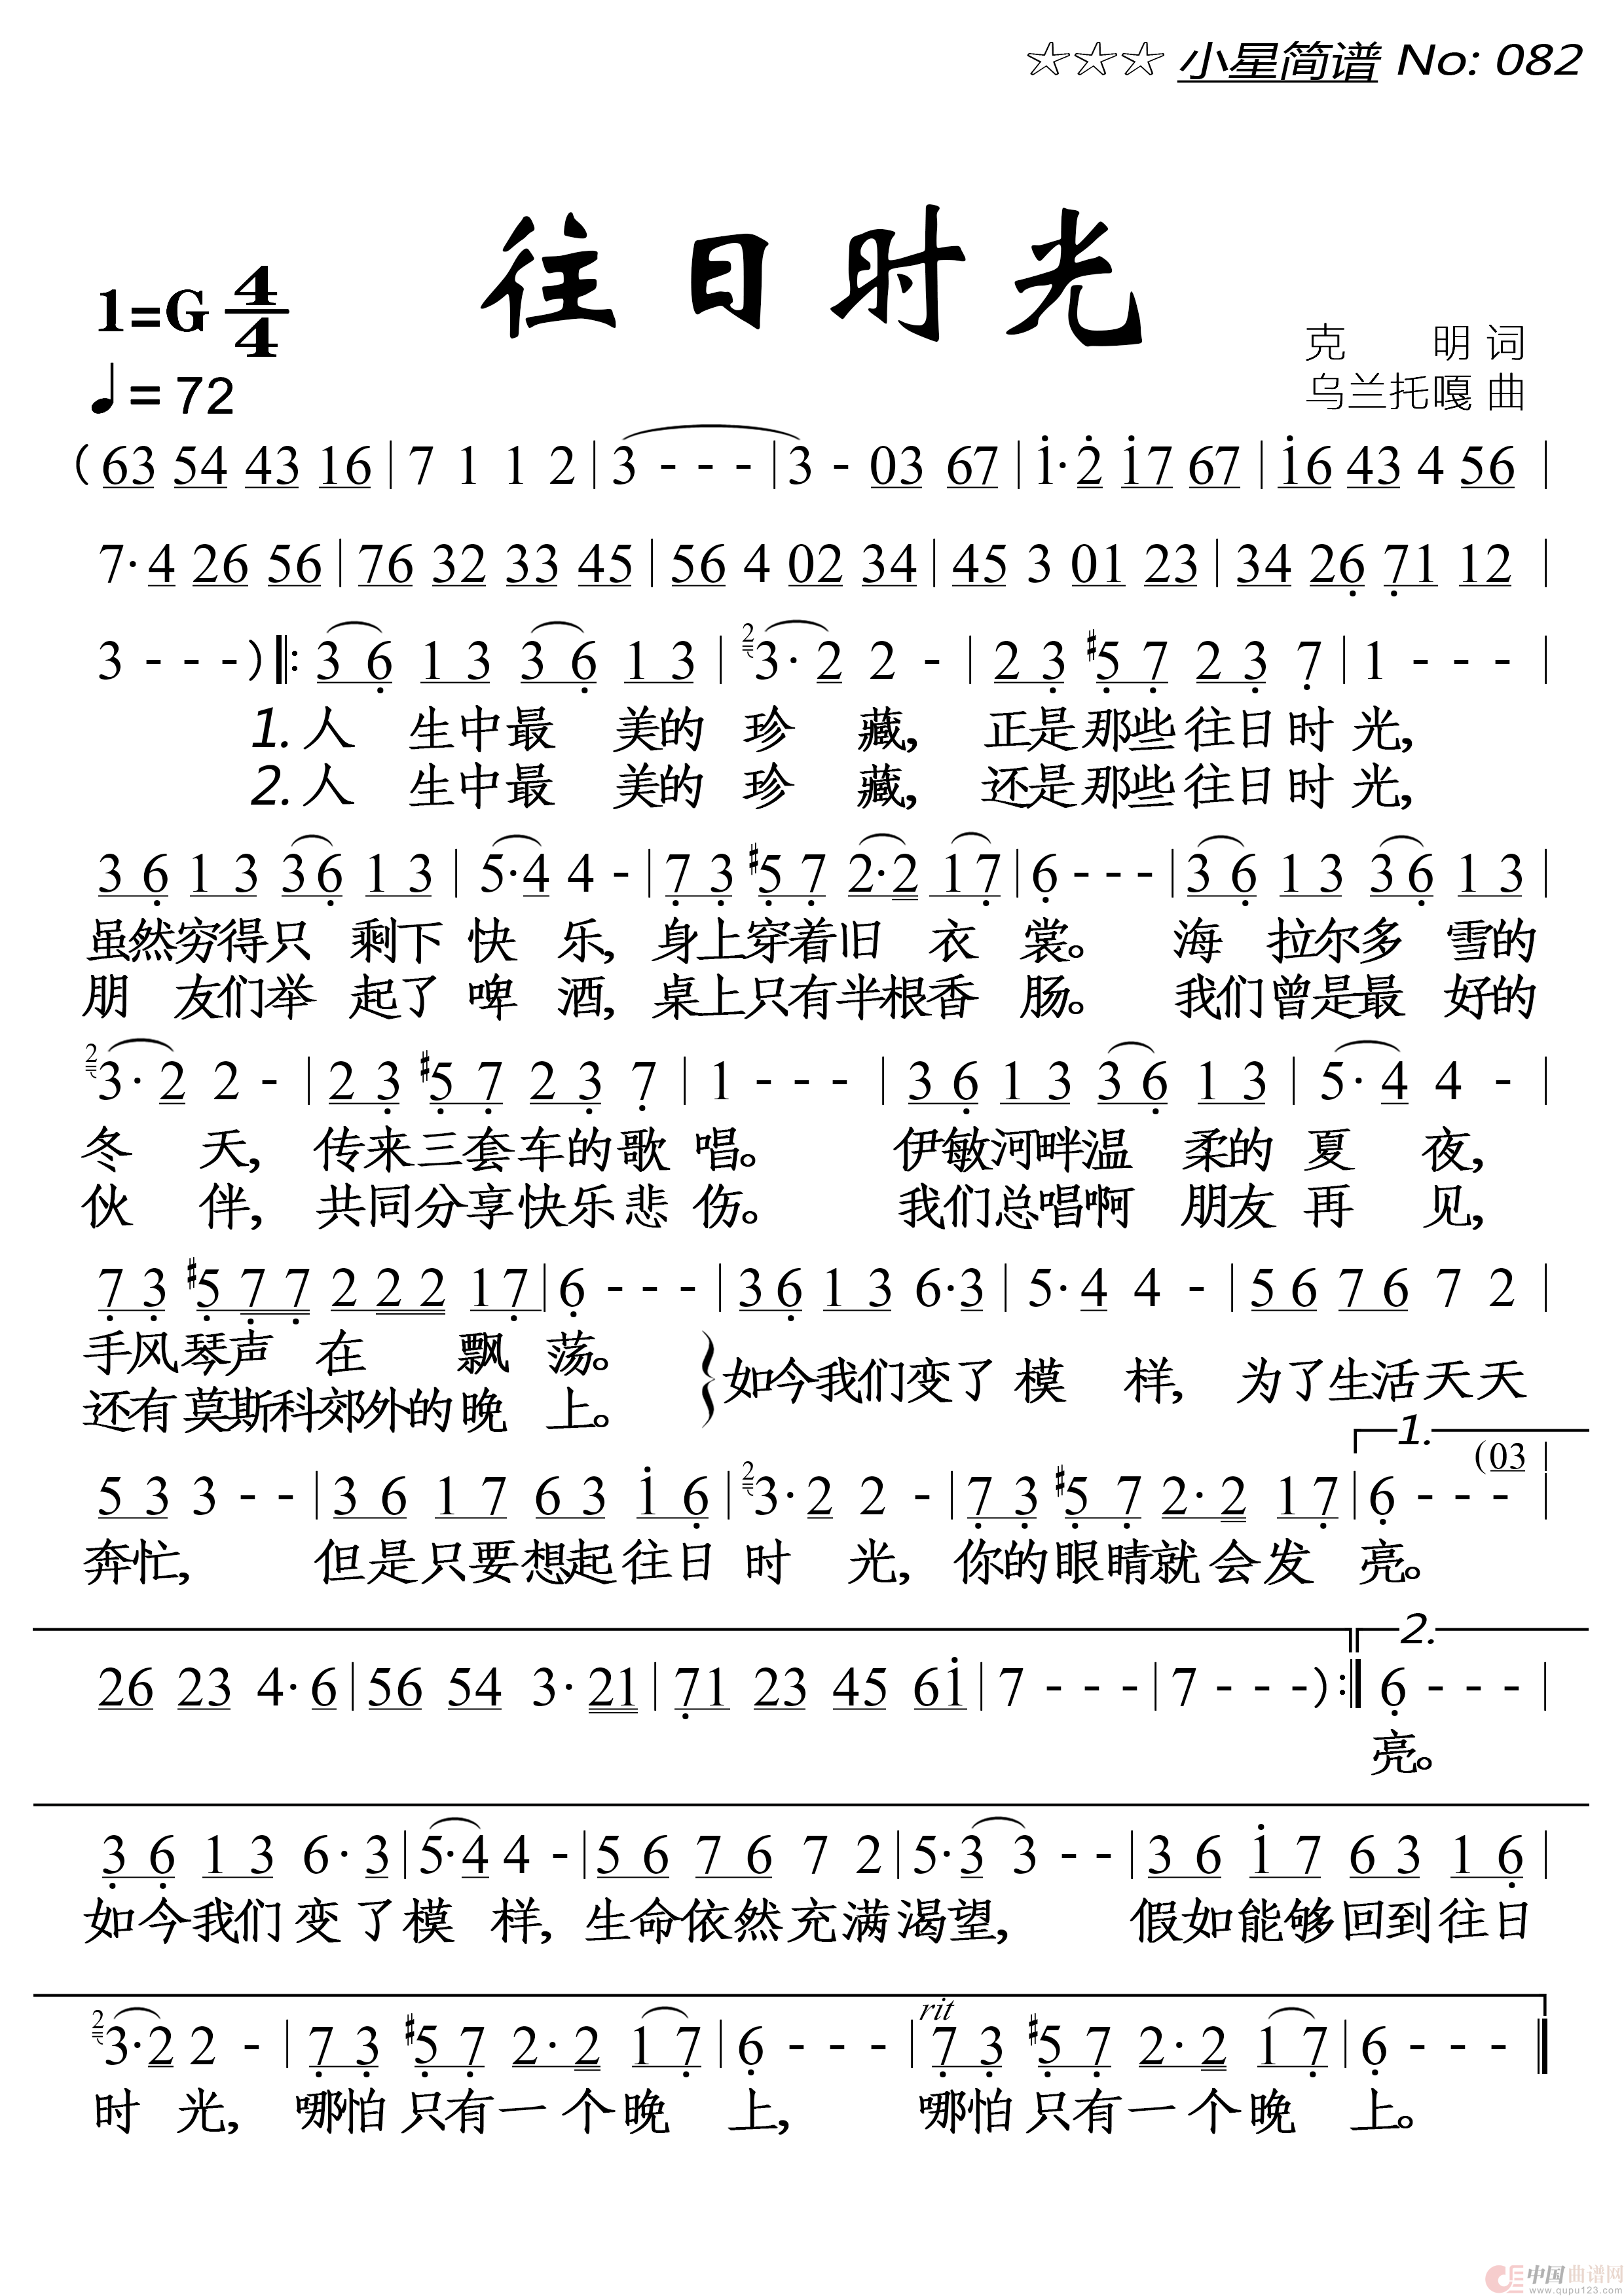 ☆☆☆ 小星简谱 No: 082
往日时光
1=G 4/4
♩= 72
克 明 词
乌兰托嘎 曲
( 63 54 43 16 | 7 1 1 2 | 3 - - - | 3 - 03 67 | i· 2̇ i7 67 | i6 43 4 56 |
7· 4 26 56 | 76 32 33 45 | 56 4 02 34 | 45 3 01 23 | 34 26̣ 7̣1 12 |
3 - - - ) ‖: 3 6̣ 1 3 3 6̣ 1 3 | ²3· 2 2 - | 2 3̣ #5̣ 7̣ 2 3̣ 7̣ | 1 - - - |
1. 人 生中最 美的 珍 藏, 正是那些往日时 光,
2. 人 生中最 美的 珍 藏, 还是那些往日时 光,
3 6̣ 1 3 3 6̣ 1 3 | 5· 4 4 - | 7̣ 3̣ #5̣ 7̣ 2· 2 1 7̣ | 6̣ - - - | 3 6̣ 1 3 3 6̣ 1 3 |
虽然穷得只 剩下 快 乐, 身上穿着旧 衣 裳。 海 拉尔多 雪的
朋 友们举 起了 啤 酒, 桌上只有半根香 肠。 我们曾是最 好的
²3· 2 2 - | 2 3̣ #5̣ 7̣ 2 3̣ 7̣ | 1 - - - | 3 6̣ 1 3 3 6̣ 1 3 | 5· 4 4 - |
冬 天, 传来三套车的歌 唱。 伊敏河畔温 柔的 夏 夜,
伙 伴, 共同分享快乐悲 伤。 我们总唱啊 朋友 再 见,
7̣ 3̣ #5̣ 7̣ 7̣ 2 2 2 1 7̣ | 6̣ - - - | 3 6̣ 1 3 6· 3 | 5· 4 4 - | 5 6 7 6 7 2 |
手风琴声 在 飘 荡。
如今我们变了 模 样, 为了生活天天
还有莫斯科郊外的晚 上。
1. (03 |
5 3 3 - - | 3 6 1 7 6 3 i 6̣ | ²3· 2 2 - | 7̣ 3̣ #5̣ 7̣ 2· 2 1 7̣ | 6̣ - - - |
奔忙, 但是只要想起往日 时 光, 你的眼睛就会发 亮。
2.
26 23 4· 6 | 56 54 3· 21 | 7̣1 23 45 6i | 7 - - - | 7 - - - ) :‖ 6̣ - - - |
亮。
3̣ 6̣ 1 3 6· 3 | 5· 4 4 - | 5 6 7 6 7 2 | 5· 3 3 - - | 3 6 i 7 6 3 1 6̣ |
如今我们变了模 样, 生命依然充满渴望, 假如能够回到往日
rit
²3· 2 2 - | 7̣ 3̣ #5̣ 7̣ 2· 2 1 7̣ | 6̣ - - - | 7̣ 3̣ #5̣ 7̣ 2· 2 1 7̣ | 6̣ - - - ‖
时 光, 哪怕只有一个晚 上, 哪怕只有一个晚 上。
中国曲谱网
www.qupu123.com